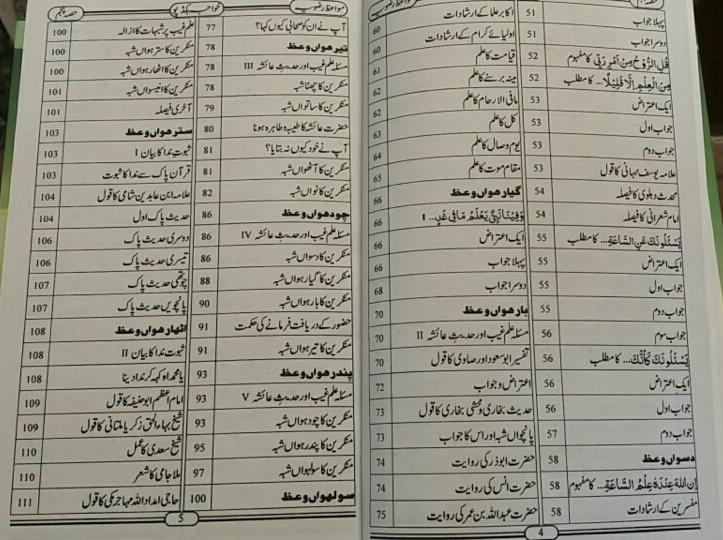 مواعظ رضویہ
پہلا جواب 51
دوسرا جواب 51
قُلِ الرُّوْحُ مِنْ اَمْرِ رَبِّیْ کا مفہوم 52
مِنَ الْعِلْمِ اِلَّا قَلِیْلًا... کا مطلب 52
ایک اعتراض 53
جواب اول 53
جواب دوم 53
علامہ یوسف نبہانی کا قول 53
محدث دہلوی کا فیصلہ 54
امام شعرانی کا فیصلہ 54
یَسْئَلُوْنَكَ عَنِ السَّاعَةِ... کا مطلب 55
ایک اعتراض 55
جواب اول 55
جواب دوم 55
جواب سوم 56
یَسْئَلُوْنَكَ كَاَنَّكَ... کا مطلب 56
ایک اعتراض 56
جواب اول 56
جواب دوم 57
دسواں وعظ 58
اِنَّ اللهَ عِنْدَهٗ عِلْمُ السَّاعَةِ... کا مفہوم 58
مفسرین کے ارشادات 58
اکابر علما کے ارشادات 60
اولیائے کرام کے ارشادات 60
قیامت کا علم 61
مینہ برسنے کا علم 62
مافی الارحام کا علم 62
کل کا علم 63
یوم وصال کا علم 64
مقام موت کا علم 65
گیارھواں وعظ 66
وَفِیْنَا نَبِیٌّ یَّعْلَمُ مَا فِیْ غَدٍ... I 66
ایک اعتراض 66
پہلا جواب 66
دوسرا جواب 68
بارھواں وعظ 70
مسئلہ علم غیب اور حدیث عائشہ II 70
تفسیر ابوسعود اور صاوی کا قول 70
اعتراض و جواب 72
حدیث بخاری و محشی بخاری کا قول 73
پانچواں شبہ اور اس کا جواب 73
حضرت ابوذر کی روایت 74
حضرت انس کی روایت 74
حضرت عبداللہ بن عمر کی روایت 75
4
حصہ پنجم
خواجہ بکڈپو
مواعظ رضویہ
آپ نے ان کو صحابی کیوں کہا؟ 77
تیرھواں وعظ 78
مسئلہ علم غیب اور حدیث عائشہ III 78
منکرین کا چھٹا شبہ 78
منکرین کا ساتواں شبہ 79
حضرت عائشہ کا طیبہ و طاہرہ ہونا 80
آپ نے خود کیوں نہ بتایا؟ 81
منکرین کا آٹھواں شبہ 81
منکرین کا نواں شبہ 82
چودھواں وعظ 86
مسئلہ علم غیب اور حدیث عائشہ IV 86
منکرین کا دسواں شبہ 86
منکرین کا گیارہواں شبہ 88
منکرین کا بارہواں شبہ 90
حضور کے دریافت فرمانے کی حکمت 91
منکرین کا تیرہواں شبہ 91
پندرھواں وعظ 93
مسئلہ علم غیب اور حدیث عائشہ V 93
منکرین کا چودہواں شبہ 93
منکرین کا پندرہواں شبہ 95
منکرین کا سولہواں شبہ 97
سولھواں وعظ 100
علم غیب پر شبہات کا ازالہ 100
منکرین کا سترہواں شبہ 100
منکرین کا اٹھارہواں شبہ 100
منکرین کا انیسواں شبہ 101
آخری فیصلہ 101
سترھواں وعظ 103
ثبوت ندا کا بیان I 103
قرآن پاک سے ندا کا ثبوت 103
علامہ ابن عابدین شامی کا قول 104
حدیث پاک اول 104
دوسری حدیث پاک 106
تیسری حدیث پاک 106
چوتھی حدیث پاک 107
پانچویں حدیث پاک 107
اٹھارھواں وعظ 108
ثبوت ندا کا بیان II 108
یا محمداہ کہہ کر ندا دینا 108
امام اعظم ابوحنیفہ کا قول 109
شیخ بہاء الحق زکریا ملتانی کا قول 109
شیخ سعدی کا عمل 110
ملا جامی کا شعر 110
حاجی امداد اللہ مہاجر مکی کا قول 111
5